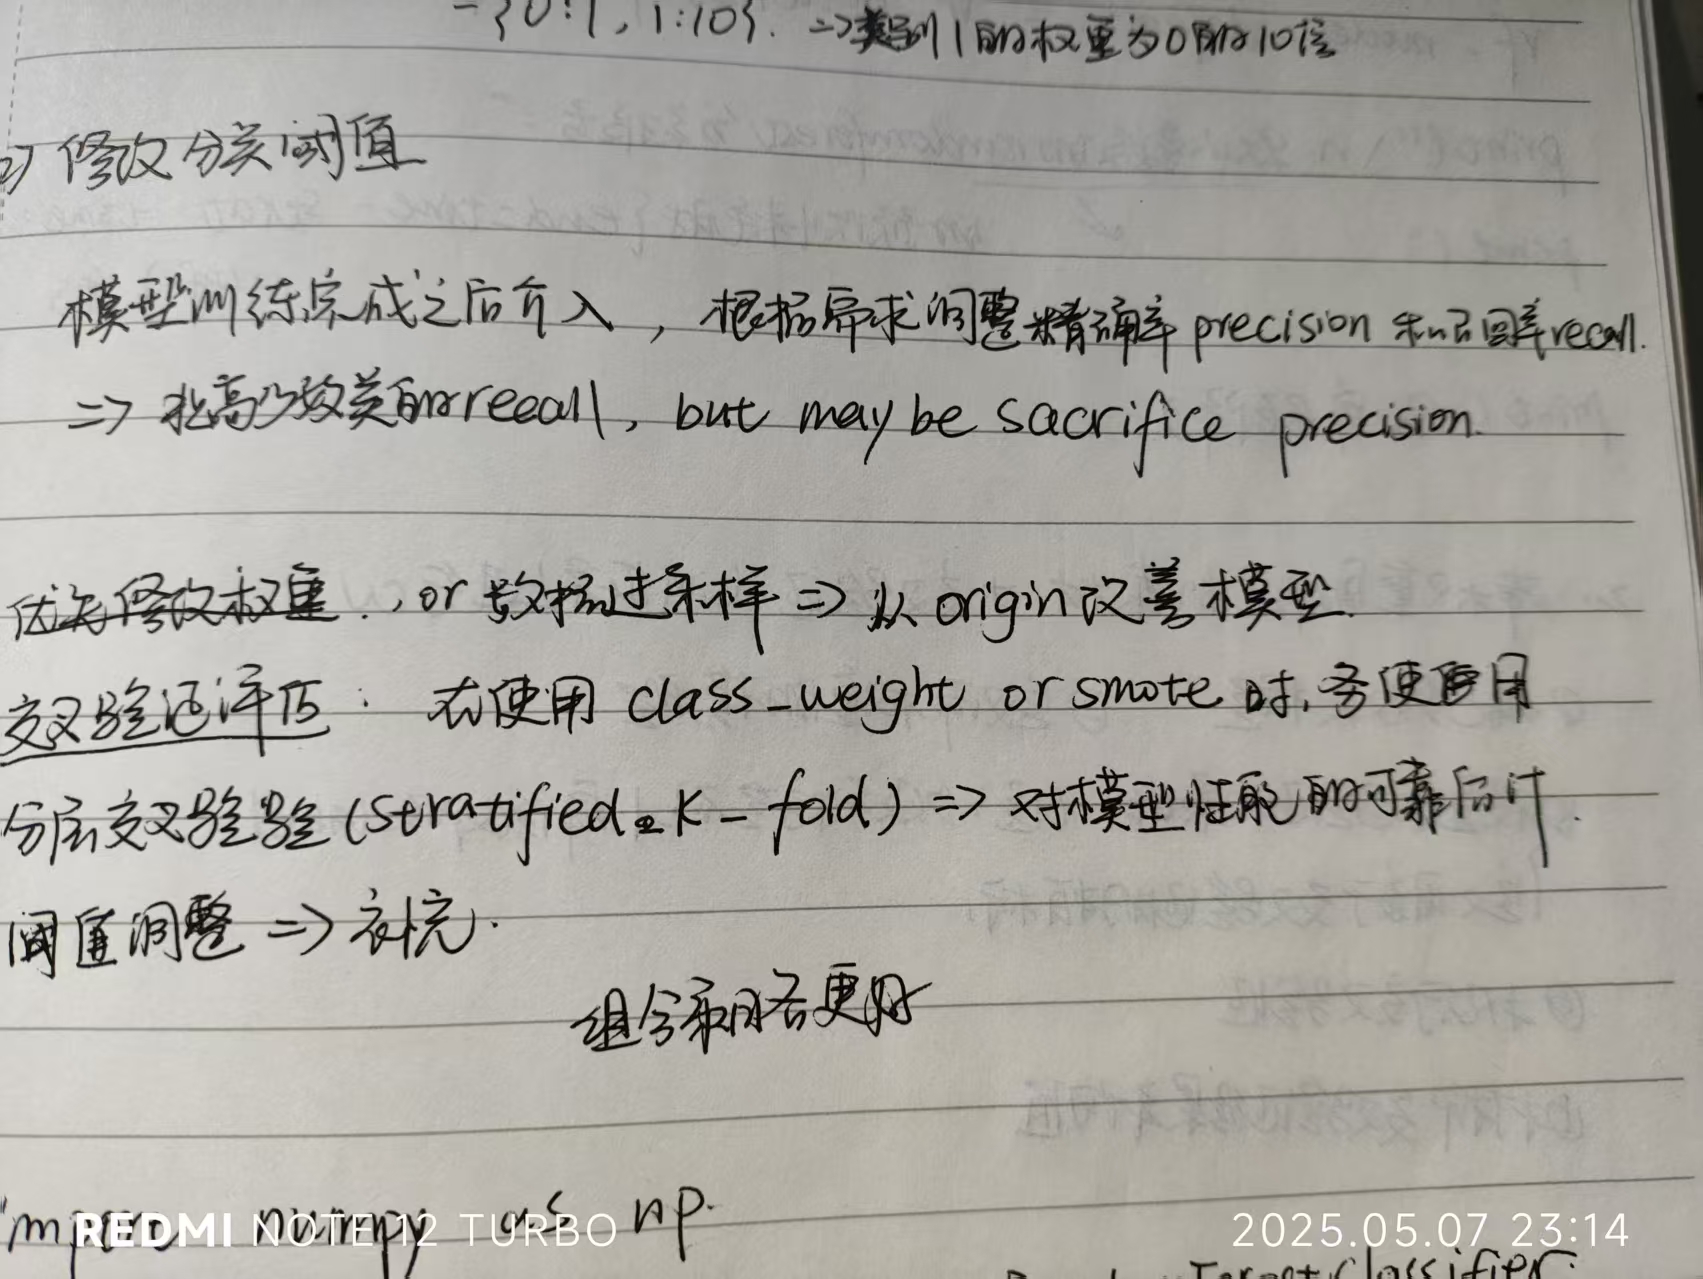 ={0:1, 1:10}. => 类别1的权重为0的10倍
2) 修改分类阈值
模型训练完成之后介入，根据需求调整精确率precision和召回率recall.
=> 提高少数类的recall, but may be sacrifice precision.
优先修改权重., or 数据过采样 => 从origin改善模型.
交叉验证评估: 在使用 class_weight or smote 时, 务使用
分层交叉验验(stratified_K_fold) => 对模型性能的可靠估计.
阈值调整 => 补充.
组合采用各更好
import numpy as np.
REDMI NOTE 12 TURBO
2025.05.07 23:14
ForestClassifier.